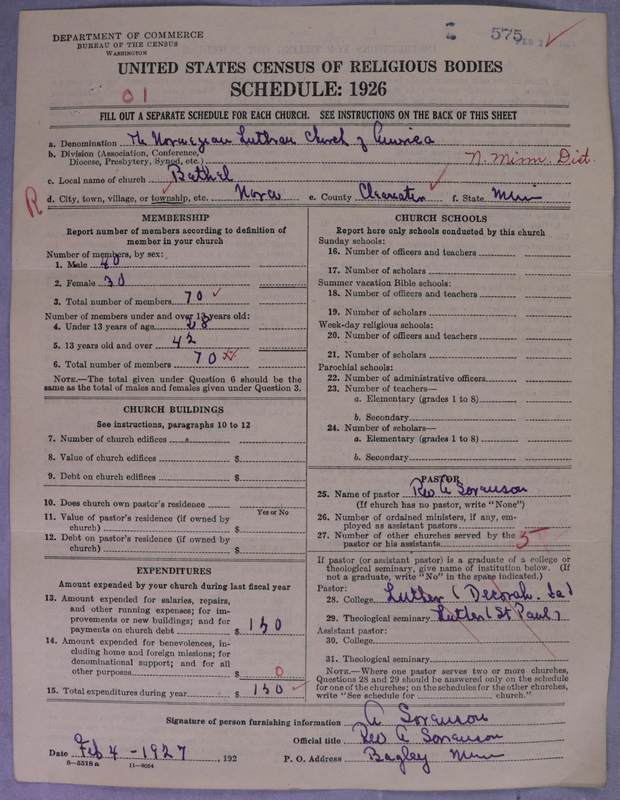 DEPARTMENT OF COMMERCE
BUREAU OF THE CENSUS
WASHINGTON
575
UNITED STATES CENSUS OF RELIGIOUS BODIES
SCHEDULE: 1926
01
FILL OUT A SEPARATE SCHEDULE FOR EACH CHURCH. SEE INSTRUCTIONS ON THE BACK OF THIS SHEET
a. Denomination The Norwegian Lutheran Church of America
b. Division (Association, Conference, Diocese, Presbytery, Synod, etc.) N. Minn. Dist.
c. Local name of church Bethel
R d. City, town, village, or township, etc. Nora e. County Clearwater f. State Minn
MEMBERSHIP
Report number of members according to definition of
member in your church
Number of members, by sex:
1. Male 40
2. Female 30
3. Total number of members 70
Number of members under and over 13 years old:
4. Under 13 years of age 28
5. 13 years old and over 42
6. Total number of members 70
NOTE.—The total given under Question 6 should be the
same as the total of males and females given under Question 3.
CHURCH BUILDINGS
See instructions, paragraphs 10 to 12
7. Number of church edifices
8. Value of church edifices $
9. Debt on church edifices $
10. Does church own pastor's residence
Yes or No
11. Value of pastor's residence (if owned by
church) $
12. Debt on pastor's residence (if owned by
church) $
EXPENDITURES
Amount expended by your church during last fiscal year
13. Amount expended for salaries, repairs,
and other running expenses; for im-
provements or new buildings; and for
payments on church debt $ 150
14. Amount expended for benevolences, in-
cluding home and foreign missions; for
denominational support; and for all
other purposes $ 0
15. Total expenditures during year $ 150
CHURCH SCHOOLS
Report here only schools conducted by this church
Sunday schools:
16. Number of officers and teachers
17. Number of scholars
Summer vacation Bible schools:
18. Number of officers and teachers
19. Number of scholars
Week-day religious schools:
20. Number of officers and teachers
21. Number of scholars
Parochial schools:
22. Number of administrative officers
23. Number of teachers—
a. Elementary (grades 1 to 8)
b. Secondary
24. Number of scholars—
a. Elementary (grades 1 to 8)
b. Secondary
PASTOR
25. Name of pastor Rev A Sorenson
(If church has no pastor, write "None")
26. Number of ordained ministers, if any, em-
ployed as assistant pastors
27. Number of other churches served by the
pastor or his assistants 5
If pastor (or assistant pastor) is a graduate of a college or
theological seminary, give name of institution below. (If
not a graduate, write "No" in the space indicated.)
Pastor:
28. College Luther (Decorah. Ia)
29. Theological seminary Luther (St Paul)
Assistant pastor:
30. College
31. Theological seminary
NOTE.—Where one pastor serves two or more churches,
Questions 28 and 29 should be answered only on the schedule
for one of the churches; on the schedules for the other churches,
write "See schedule for church."
Signature of person furnishing information A Sorenson
Official title Rev A Sorenson
Date Feb 4 - 1927, 192 P. O. Address Bagley Minn
8—5518 a 11—9054